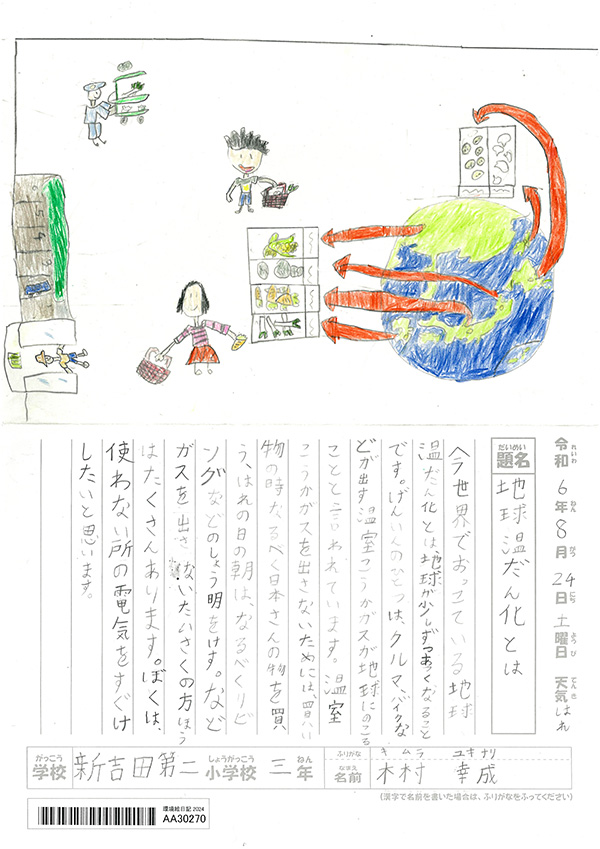 令和6年8月24日土曜日 天気はれ
れいわ ねん がつ にち ようび てんき
だいめい
題名
地球温だん化とは
今世界でおっている地球
温だん化とは地球が少しずつあつくなること
です。げんいんのひとつは、クルマ、バイクな
どが出す温室こうかガスが地球にのこる
ことと言われています。温室
こうかガスを出さないためには、買い
物の時なるべく日本さんの物を買
う、はれの日の朝は、なるべくリビ
ングなどのしょう明をけす。など
ガスを出さないたいさくの方ほう
はたくさんあります。ぼくは、
使わない所の電気をすぐけ
したいと思います。
がっこう しょうがっこう ねん
学校 新吉田第二小学校 三年
ふりがな キムラ ユキナリ
なまえ
名前 木村 幸成
(漢字で名前を書いた場合は、ふりがなをふってください)
環境絵日記2024
AA30270